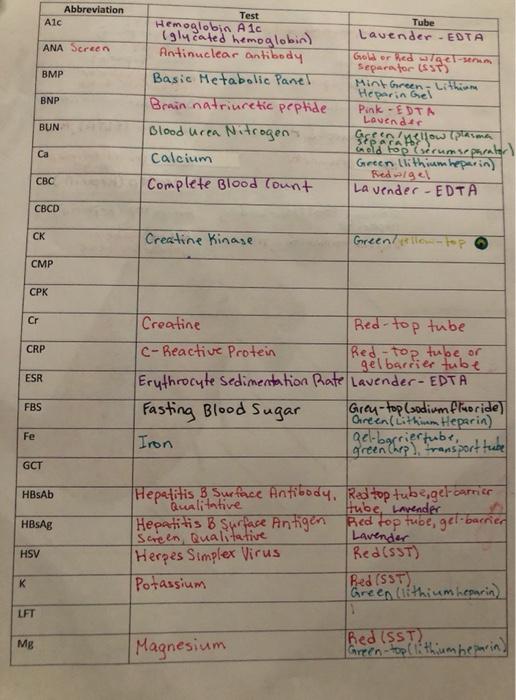 Abbreviation Test Tube
A1c Hemoglobin A1c
(glycated hemoglobin) Lavender - EDTA
ANA Screen Antinuclear antibody Gold or Red w/gel-serum
Separator (SST)
BMP Basic Metabolic Panel Mint Green - Lithium
Heparin Gel
BNP Brain natriuretic peptide Pink - EDTA
Lavender
BUN Blood Urea Nitrogen Green/yellow (plasma
separator)
Gold top (serum separator)
Ca Calcium Green (lithium heparin)
Red w/gel
CBC Complete Blood Count Lavender - EDTA
CBCD
CK Creatine Kinase Green/yellow-top
CMP
CPK
Cr Creatine Red-top tube
CRP C-Reactive Protein Red-top tube or
gel barrier tube
ESR Erythrocyte Sedimentation Rate Lavender - EDTA
FBS Fasting Blood Sugar Grey-top (sodium fluoride)
Green (Lithium Heparin)
Fe Iron gel-barrier tube,
green (hep), transport tube
GCT
HBsAb Hepatitis B Surface Antibody, Red top tube, gel-barrier
Qualitative tube, Lavender
HBsAg Hepatitis B Surface Antigen Red top tube, gel-barrier
Screen, Qualitative Lavender
HSV Herpes Simplex Virus Red (SST)
K Potassium Red (SST)
Green (lithium heparin)
LFT
Mg Magnesium Red (SST)
Green-top (lithium heparin)